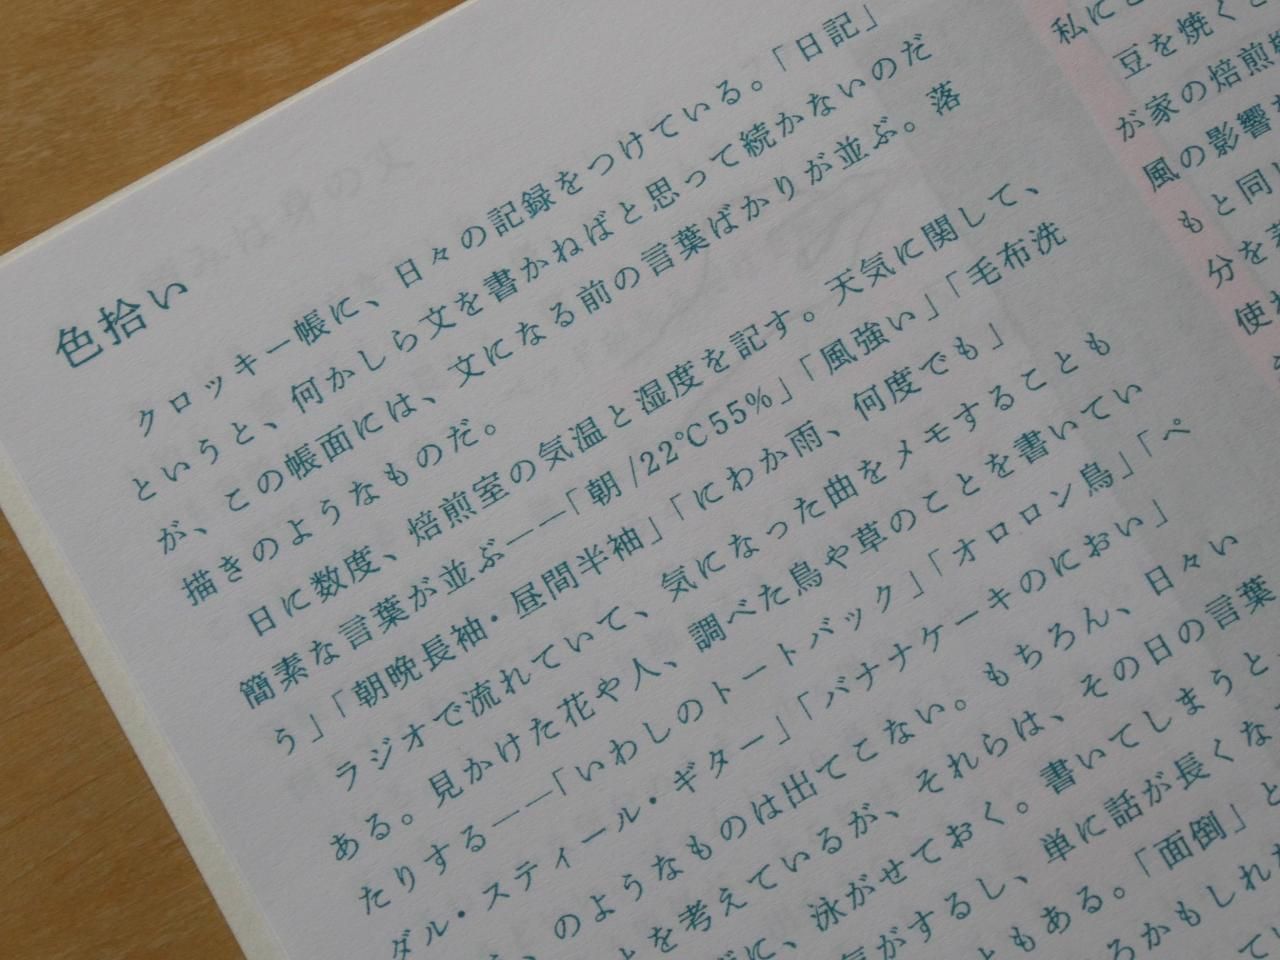 色拾い
クロッキー帳に、日々の記録をつけている。「日記」
というと、何かしら文を書かねばと思って続かないのだ
が、この帳面には、文になる前の言葉ばかりが並ぶ。落
描きのようなものだ。
日に数度、焙煎室の気温と湿度を記す。天気に関して、
簡素な言葉が並ぶ――「朝/22℃55%」「風強い」「毛布洗
う」「朝晩長袖・昼間半袖」「にわか雨、何度でも」
ラジオで流れていて、気になった曲をメモすることも
ある。見かけた花や人、調べた鳥や草のことを書いてい
たりする――「いわしのトートバック」「オロロン鳥」「ペ
ダル・スティール・ギター」「バナナケーキのにおい」
、のようなものは出てこない。もちろん、日々い
とを考えているが、それらは、その日の言葉
に、泳がせておく。書いてしまうと、
気がするし、単に話が長くな
ともある。「面倒」と
ろかもしれ
てい
私に
豆を焼く
が家の焙煎
風の影響
もと同じ
分を
使